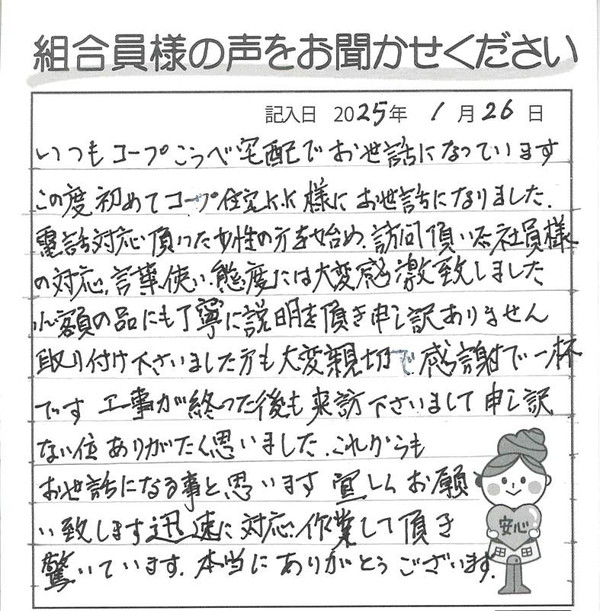 組合員様の声をお聞かせください
記入日 2025年 1月26日
いつもコープこうべ宅配でお世話になっています
この度初めてコープ住宅K.K様にお世話になりました.
電話対応頂いた女性の方を始め、訪問頂いた社員様
の対応、言葉使い、態度には大変感激致しました
小額の品にも丁寧に説明を頂き申し訳ありません
取り付け下さいました方も大変親切で感謝で一杯
です 工事が終った後も来訪下さいまして申し訳
ない位ありがたく思いました.これからも
お世話になる事と思います 宜しくお願
い致します迅速に対応、作業して頂き
驚いています.本当にありがとうございます.
安心